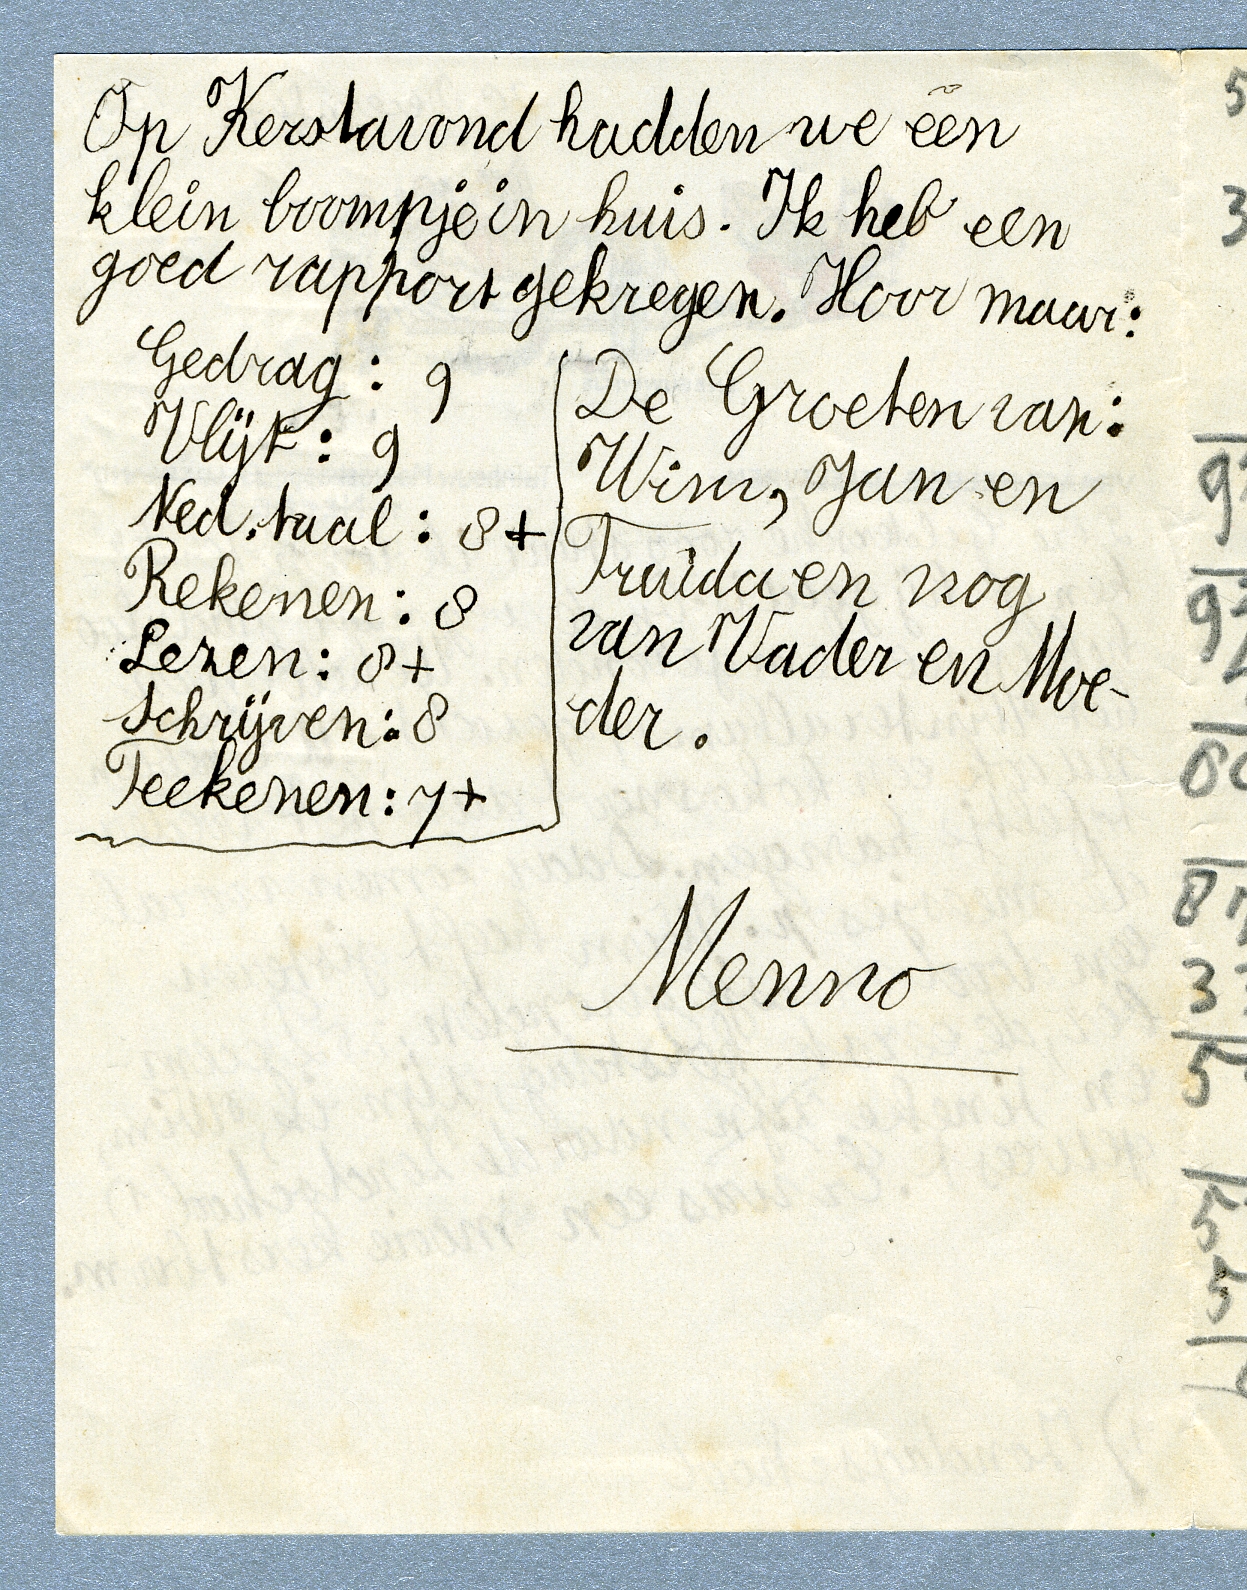 Op Kerstavond hadden we een
klein boompje in huis. Ik heb een
goed rapport gekregen. Hoor maar:
Gedrag: 9
Vlijt: 9
Ned. taal: 8+
Rekenen: 8
Lezen: 8+
Schrijven: 8
Teekenen: 7+
De Groeten van:
Wim, Jan en
Truida en nog
van Vader en Moe-
der.
Menno
5
3
9
9
8
3
5
5
5